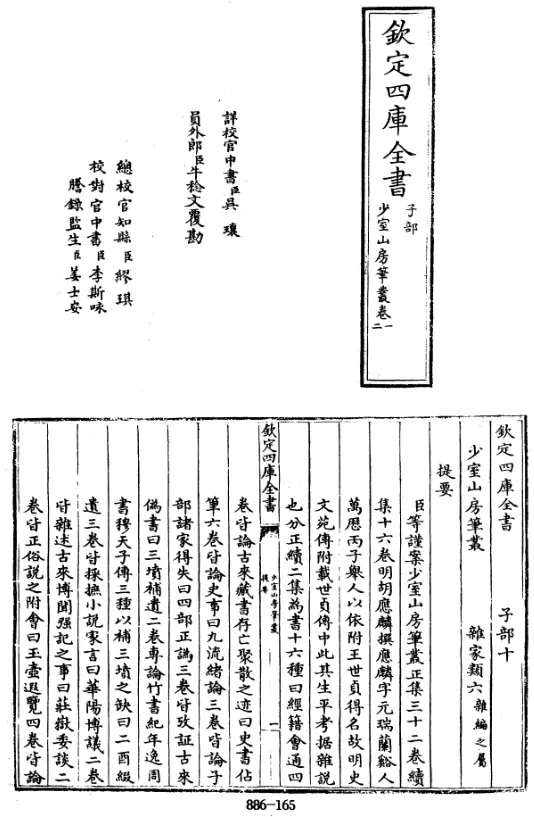 欽定四庫全書
子部
少室山房筆叢卷一
二
詳校官中書臣吳瓖
員外郎臣牛稔文覆勘
總校官知縣臣繆琪
校對官中書臣李斯咏
謄錄監生臣姜士安
欽定四庫全書 子部十
少室山房筆叢 雜家類六雜編之屬
提要
臣等謹案少室山房筆叢正集三十二卷續
集十六卷明胡應麟撰應麟字元瑞蘭谿人
萬厯丙子舉人以依附王世貞得名故明史
文苑傳附載世貞傳中此其生平考据雜說
也分正續二集為書十六種曰經籍會通四
欽定四庫全書
少室山房筆叢
提要
一
卷皆論古來藏書存亡聚散之迹曰史書佔
筆六卷皆論史事曰九流緒論三卷皆論子
部諸家得失曰四部正譌三卷皆攷証古來
偽書曰三墳補遺二卷專論竹書紀年逸周
書穆天子傳三種以補三墳之缺曰二酉綴
遺三卷皆採摭小說家言曰華陽博議二卷
皆雜述古來博聞强記之事曰莊嶽委談二
卷皆正俗說之附會曰玉壺遐覽四卷皆論
886-165